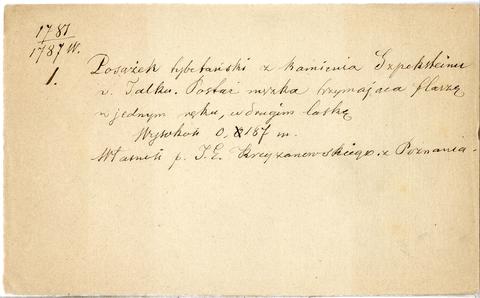 1781
1787 W.
1.
Posążek tybetański z kamienia Szpeksteinu
v. Talku. Postać męzka trzymająca flaszę
w jednym ręku, w drugim laskę
Wysokość 0,187 m.
Własność p. J. E. Krzyżanowskiego z Poznania.